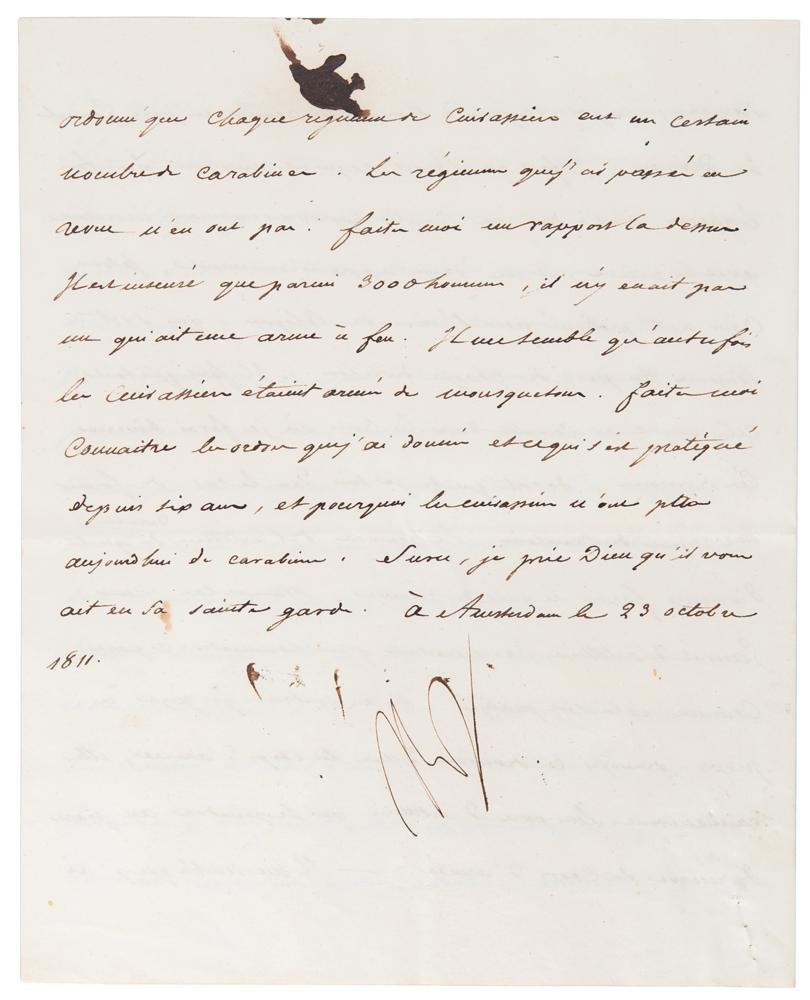 ordonné que chaque régiment de Cuirassiers eut un certain
nombre de carabines. Les régimens que j'ai passés en
revue n'en ont pas. faites moi un rapport la dessus
Il est insensé que parmi 3000 hommes, il n'y en ait pas
un qui ait une arme à feu. Il me semble qu'autrefois
les cuirassiers étaient armés de mousquetons. faites moi
Connaitre les ordres que j'ai donnés et ce qui s'est pratiqué
depuis six ans, et pourquoi les cuirassiers n'ont plus
aujourd'hui de carabines. Sur ce, je prie Dieu qu'il vous
ait en Sa sainte garde. à Amsterdam le 23 octobre
1811.